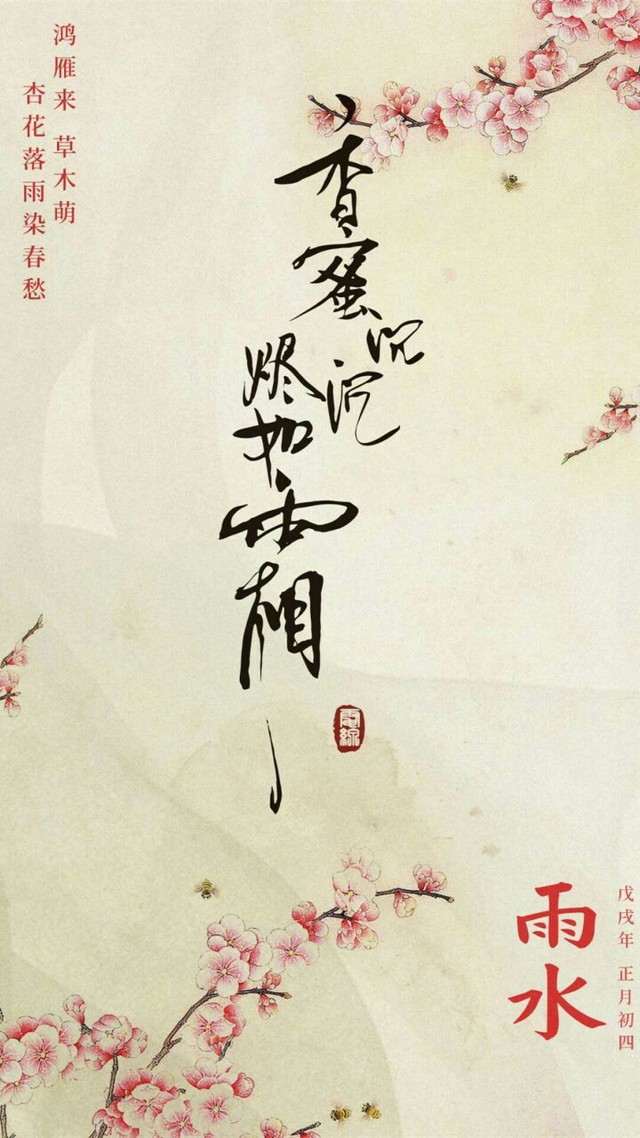 鸿雁来 草木萌
杏花落雨染春愁
香蜜沉沉
烬如霜
電線
戊戌年 正月初四
雨水